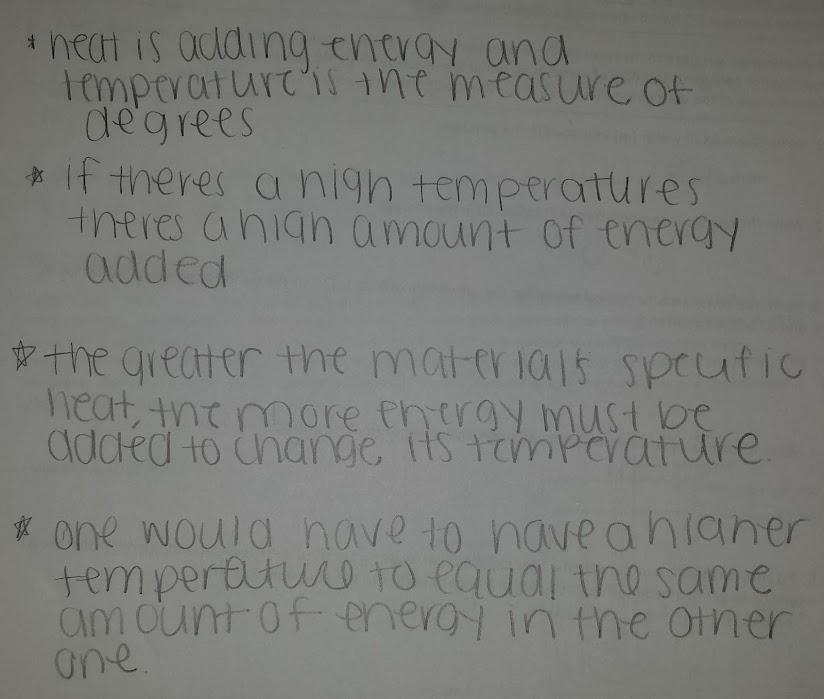 * heat is adding energy and
temperature is the measure of
degrees
* if theres a high temperatures
theres a high amount of energy
added
* the greater the materials specific
heat, the more energy must be
added to change its temperature.
* one would have to have a higher
temperature to equal the same
amount of energy in the other
one.